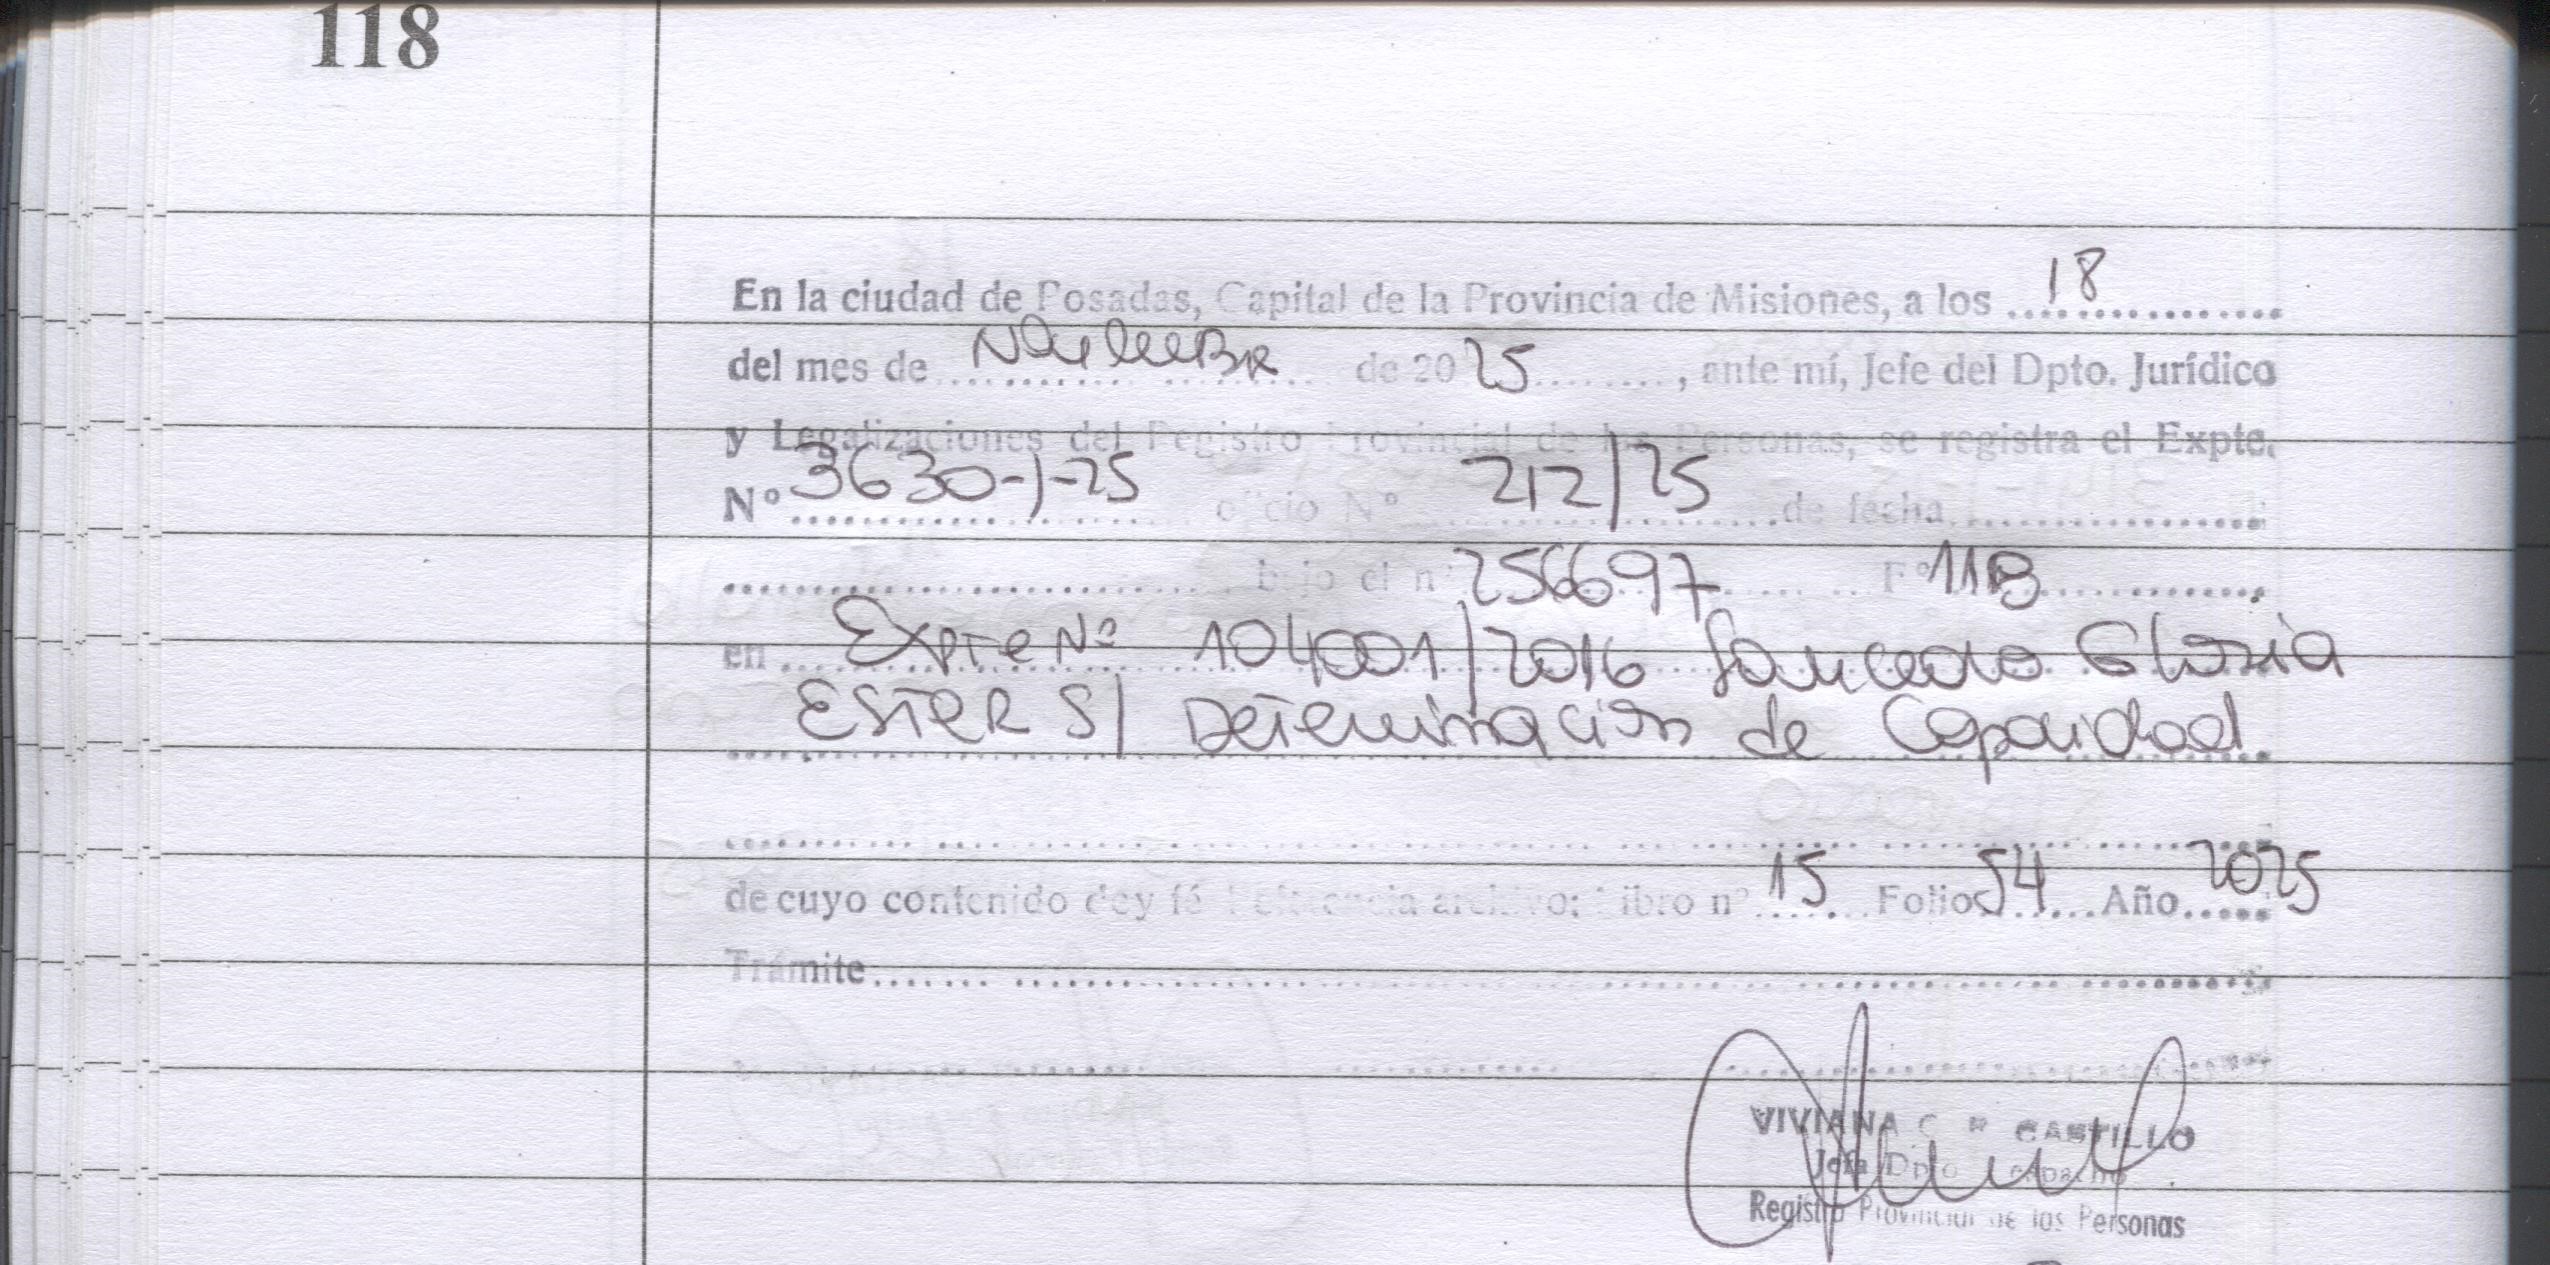 118
En la ciudad de Posadas, Capital de la Provincia de Misiones, a los 18
del mes de Noviembre de 2025, ante mí, Jefe del Dpto. Jurídico
y Legalizaciones del Registro Provincial de las Personas, se registra el Expte.
Nº 3630-J-25 oficio Nº 212/25 de fecha
bajo el nº 256697 Fº 118
en Expte Nº 104001/2016 Gloria
ESTER S/ Determinación de Capacidad
de cuyo contenido doy fé Referencia archivo: Libro nº 15 Folio 54 Año 2025
Trámite
VIVIANA C. R CASTILLO
Jefa Dpto Despacho
Registro Provincial de las Personas